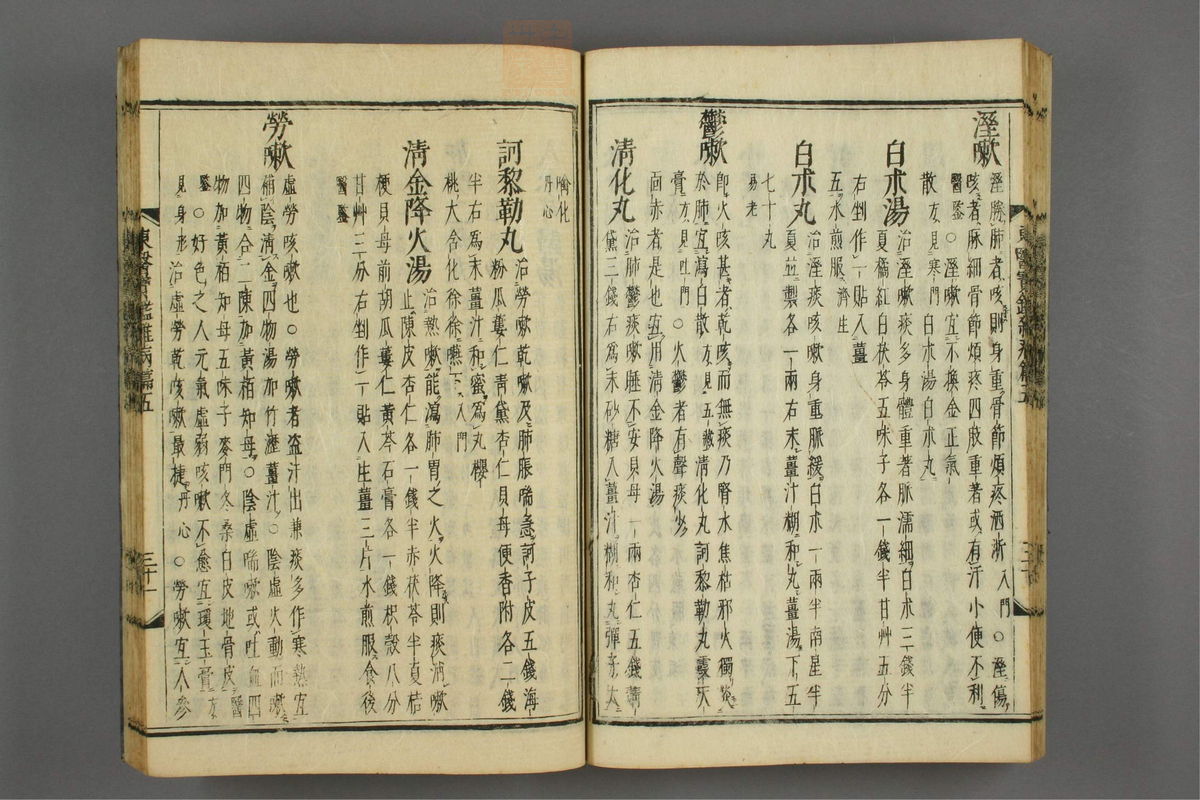 溼嗽
溼勝肺者咳則身重骨節煩疼洒淅入門○溼傷
咳者脈細骨節煩疼四肢重著或有汗小便不利
醫鑒○溼嗽宜不換金正氣
散方見寒門白朮湯白朮丸
白朮湯
治溼嗽痰多身體重著脈濡細白朮三錢半
夏橘紅白茯苓五味子各一錢半甘艸五分
右剉作一貼入薑
五水煎服濟生
白朮丸
治溼痰咳嗽身重脈緩白朮一兩半南星半
夏並製各一兩右末薑汁糊和丸薑湯下五
七十丸
易老
鬱嗽
卽火咳甚者乾咳而無痰乃腎水焦枯邪火獨炎
於肺宜瀉白散方見五藏淸化丸訶黎勒丸霞天
膏方見吐門○火鬱者有聲痰少
面赤者是也宜用淸金降火湯
淸化丸
治肺鬱痰嗽睡不安貝母一兩杏仁五錢靑
黛三錢右爲末砂糖入薑汁糊和丸彈子大
噙化
丹心
訶黎勒丸
治勞嗽乾嗽及肺脹喘急訶子皮五錢海
粉瓜蔞仁靑黛杏仁貝母便香附各二錢
半右爲末薑汁和蜜爲丸櫻
桃大含化徐徐嚥下入門
淸金降火湯
治熱嗽能瀉肺胃之火火降則痰消嗽
止陳皮杏仁各一錢半赤茯苓半夏桔
梗貝母前胡瓜蔞仁黃芩石膏各一錢枳殼八分
甘艸三分右剉作一貼入生薑三片水煎服食後
醫鑒
勞嗽
虛勞咳嗽也○勞嗽者盜汗出兼痰多作寒熱宜
補陰淸金四物湯加竹瀝薑汁○陰虛火動而嗽
四物合二陳加黃栢知母○陰虛喘嗽或吐血四
物加黃栢知母五味子麥門冬桑白皮地骨皮醫
鑒○好色之人元氣虛弱咳嗽不愈宜瓊玉膏方
見身形治虛勞乾咳嗽最捷丹心○勞嗽宜人參
東醫寶鑑雜病篇五
三十一